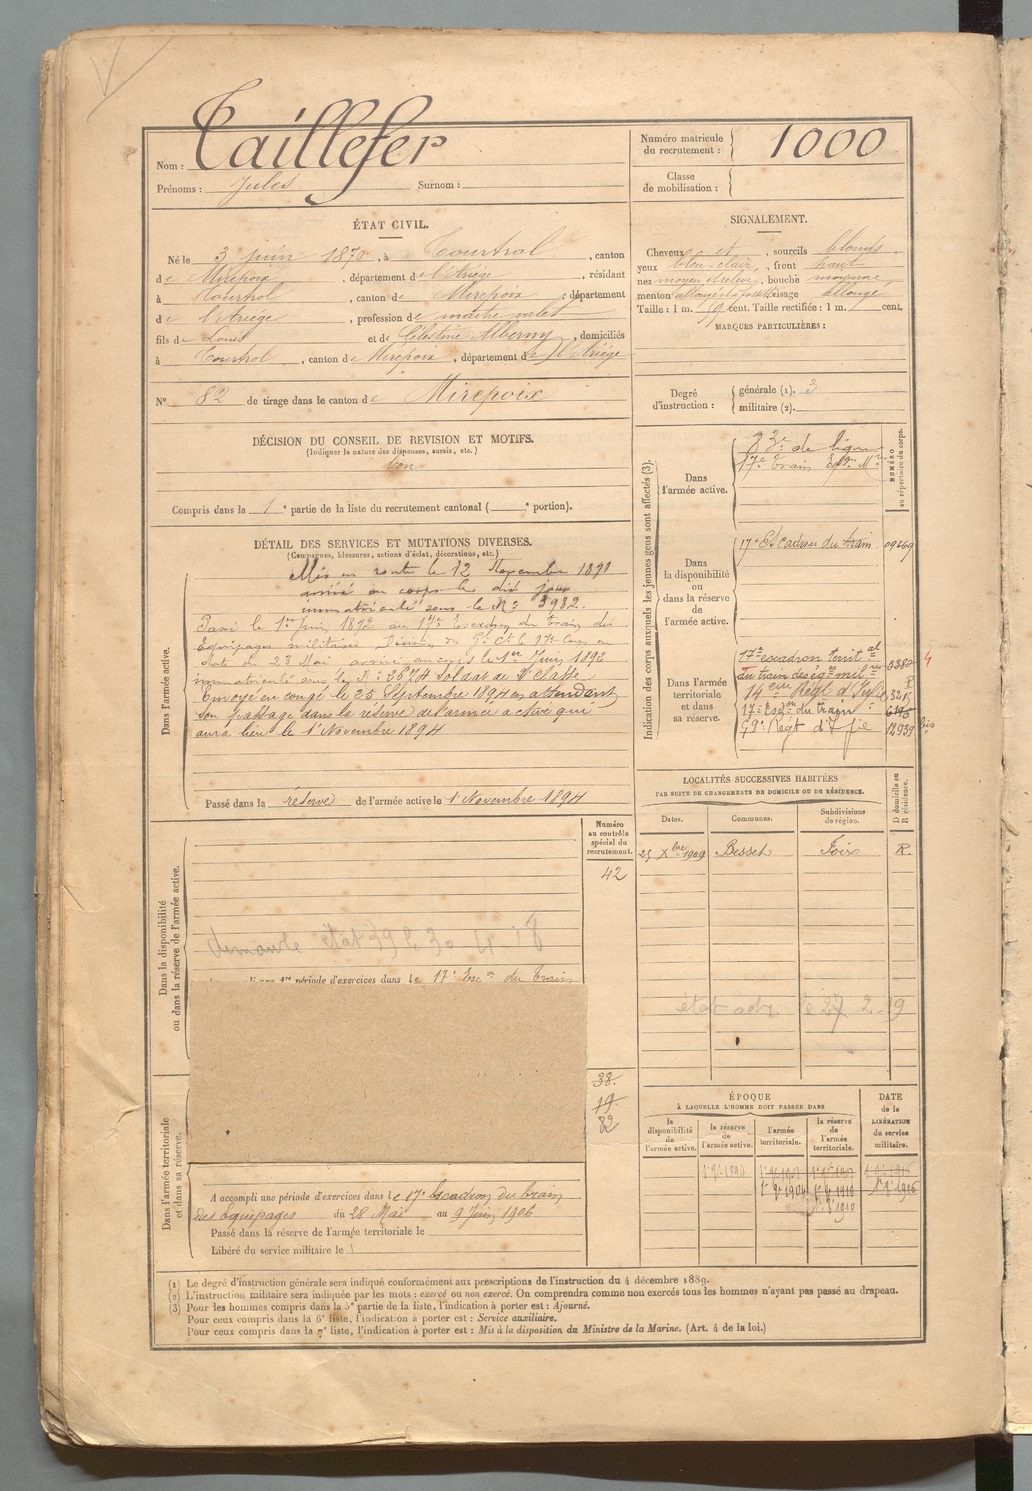 Nom : Taillefer
Prénoms : Jules Surnom :
Numéro matricule du recrutement : 1000
Classe de mobilisation :
ÉTAT CIVIL.
Né le 3 juin 1870, à Tourtrol, canton
de Mirepoix, département de l'Ariège, résidant
à Tourtrol, canton de Mirepoix, département
de l'Ariège, profession de maître valet
fils de Louis et de Célestine Alberny, domiciliés
à Tourtrol, canton de Mirepoix, département de l'Ariège
N° 82 de tirage dans le canton de Mirepoix
SIGNALEMENT.
Cheveux et, sourcils blonds
yeux bleu clair, front haut
nez moyen et relevé, bouche moyenne
menton allongé à fossette visage allongé
Taille : 1 m. 59 cent. Taille rectifiée : 1 m. cent.
MARQUES PARTICULIÈRES :
Degré d'instruction : générale (1). 3
militaire (2).
DÉCISION DU CONSEIL DE REVISION ET MOTIFS.
(Indiquer la nature des dispenses, sursis, etc.)
bon
Compris dans la 1e partie de la liste du recrutement cantonal ( e portion).
DÉTAIL DES SERVICES ET MUTATIONS DIVERSES.
(Campagnes, blessures, actions d'éclat, décorations, etc.)
Dans l'armée active.
Mis en route le 12 Novembre 1891
arrivé au corps le dit jour
immatriculé sous le N° 3982.
Passé le 1er Juin 1892 au 17me Escadron du train des
Equipages militaires Décision du Gal Ct le 17e Corps en
date du 23 Mai arrivé au corps le 1er Juin 1892
immatriculé sous le N° 2674 soldat de 2e classe
Envoyé en congé le 25 Septembre 1894 en attendant
son passage dans la réserve de l'armée active qui
aura lieu le 1er Novembre 1894
Passé dans la réserve de l'armée active le 1er Novembre 1894
Indication des corps auxquels les jeunes gens sont affectés (3).
NUMÉRO au répertoire du corps.
Dans l'armée active.
83e de ligne
17e train Eqp. Mres
Dans la disponibilité ou dans la réserve de l'armée active.
17e Escadron du train 09469
Dans l'armée territoriale et dans sa réserve.
17e escadron territ.al
du train des éqges milres 5387 4
14eme Regt d'Infie 3215
17e Esqon du train
Regt d'I fie 12939 bis
LOCALITÉS SUCCESSIVES HABITÉES
PAR SUITE DE CHANGEMENTS DE DOMICILE OU DE RÉSIDENCE.
D domicile ou R résidence.
Dates. Communes. Subdivisions de région.
25 Xbre 1909 Besset Foix R.
Numéro au contrôle spécial du recrutement.
42
Dans la disponibilité ou dans la réserve de l'armée active.
état 39 le 30
période d'exercices dans le 17e Escon du train
état le 27 2 19
38.
19.
82
ÉPOQUE
À LAQUELLE L'HOMME DOIT PASSER DANS
DATE de la LIBÉRATION du service militaire.
la disponibilité de l'armée active. la réserve de l'armée active. l'armée territoriale. la réserve de l'armée territoriale.
1er 9bre 1894
1er 9bre 1904 1er 9bre 1910 1er 9bre 1916
Dans l'armée territoriale et dans sa réserve.
A accompli une période d'exercices dans le 17e Escadron du train
des Equipages du 28 Mai au 9 Juin 1906
Passé dans la réserve de l'armée territoriale le
Libéré du service militaire le
(1) Le degré d'instruction générale sera indiqué conformément aux prescriptions de l'instruction du 4 décembre 1889.
(2) L'instruction militaire sera indiquée par les mots : exercé ou non exercé. On comprendra comme non exercés tous les hommes n'ayant pas passé au drapeau.
(3) Pour les hommes compris dans la 5e partie de la liste, l'indication à porter est : Ajourné.
Pour ceux compris dans la 6e liste, l'indication à porter est : Service auxiliaire.
Pour ceux compris dans la 7e liste, l'indication à porter est : Mis à la disposition du Ministre de la Marine. (Art. 4 de la loi.)